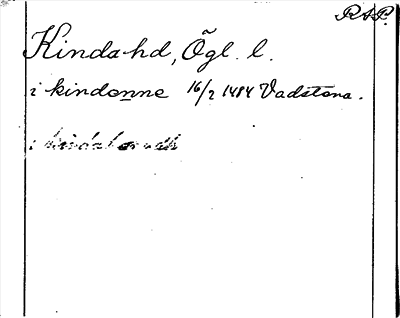 RAP.
Kinda hd, Ögl. l.
i kindonne 16/2 1484 Vadstena.